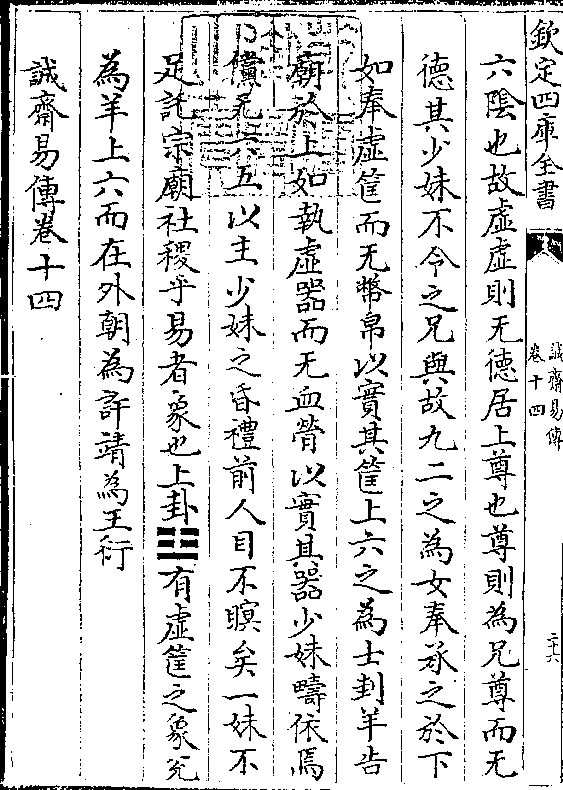 欽定四庫全書
誠齋易傳
卷十四
二十六
六陰也故虛虛則无德居上尊也尊則為兄尊而无
德其少妹不令之兄與故九二之為女奉承之於下
如奉虛筐而无幣帛以實其筐上六之為士刲羊告
廟於上如執虛器而无血膋以實其器少妹疇依焉
儻无六五以主少妹之昏禮前人目不瞑矣一妹不
足託宗廟社稷乎易者象也上卦☳有虛筐之象兊
為羊上六而在外朝為許靖為王衍
誠齋易傳卷十四